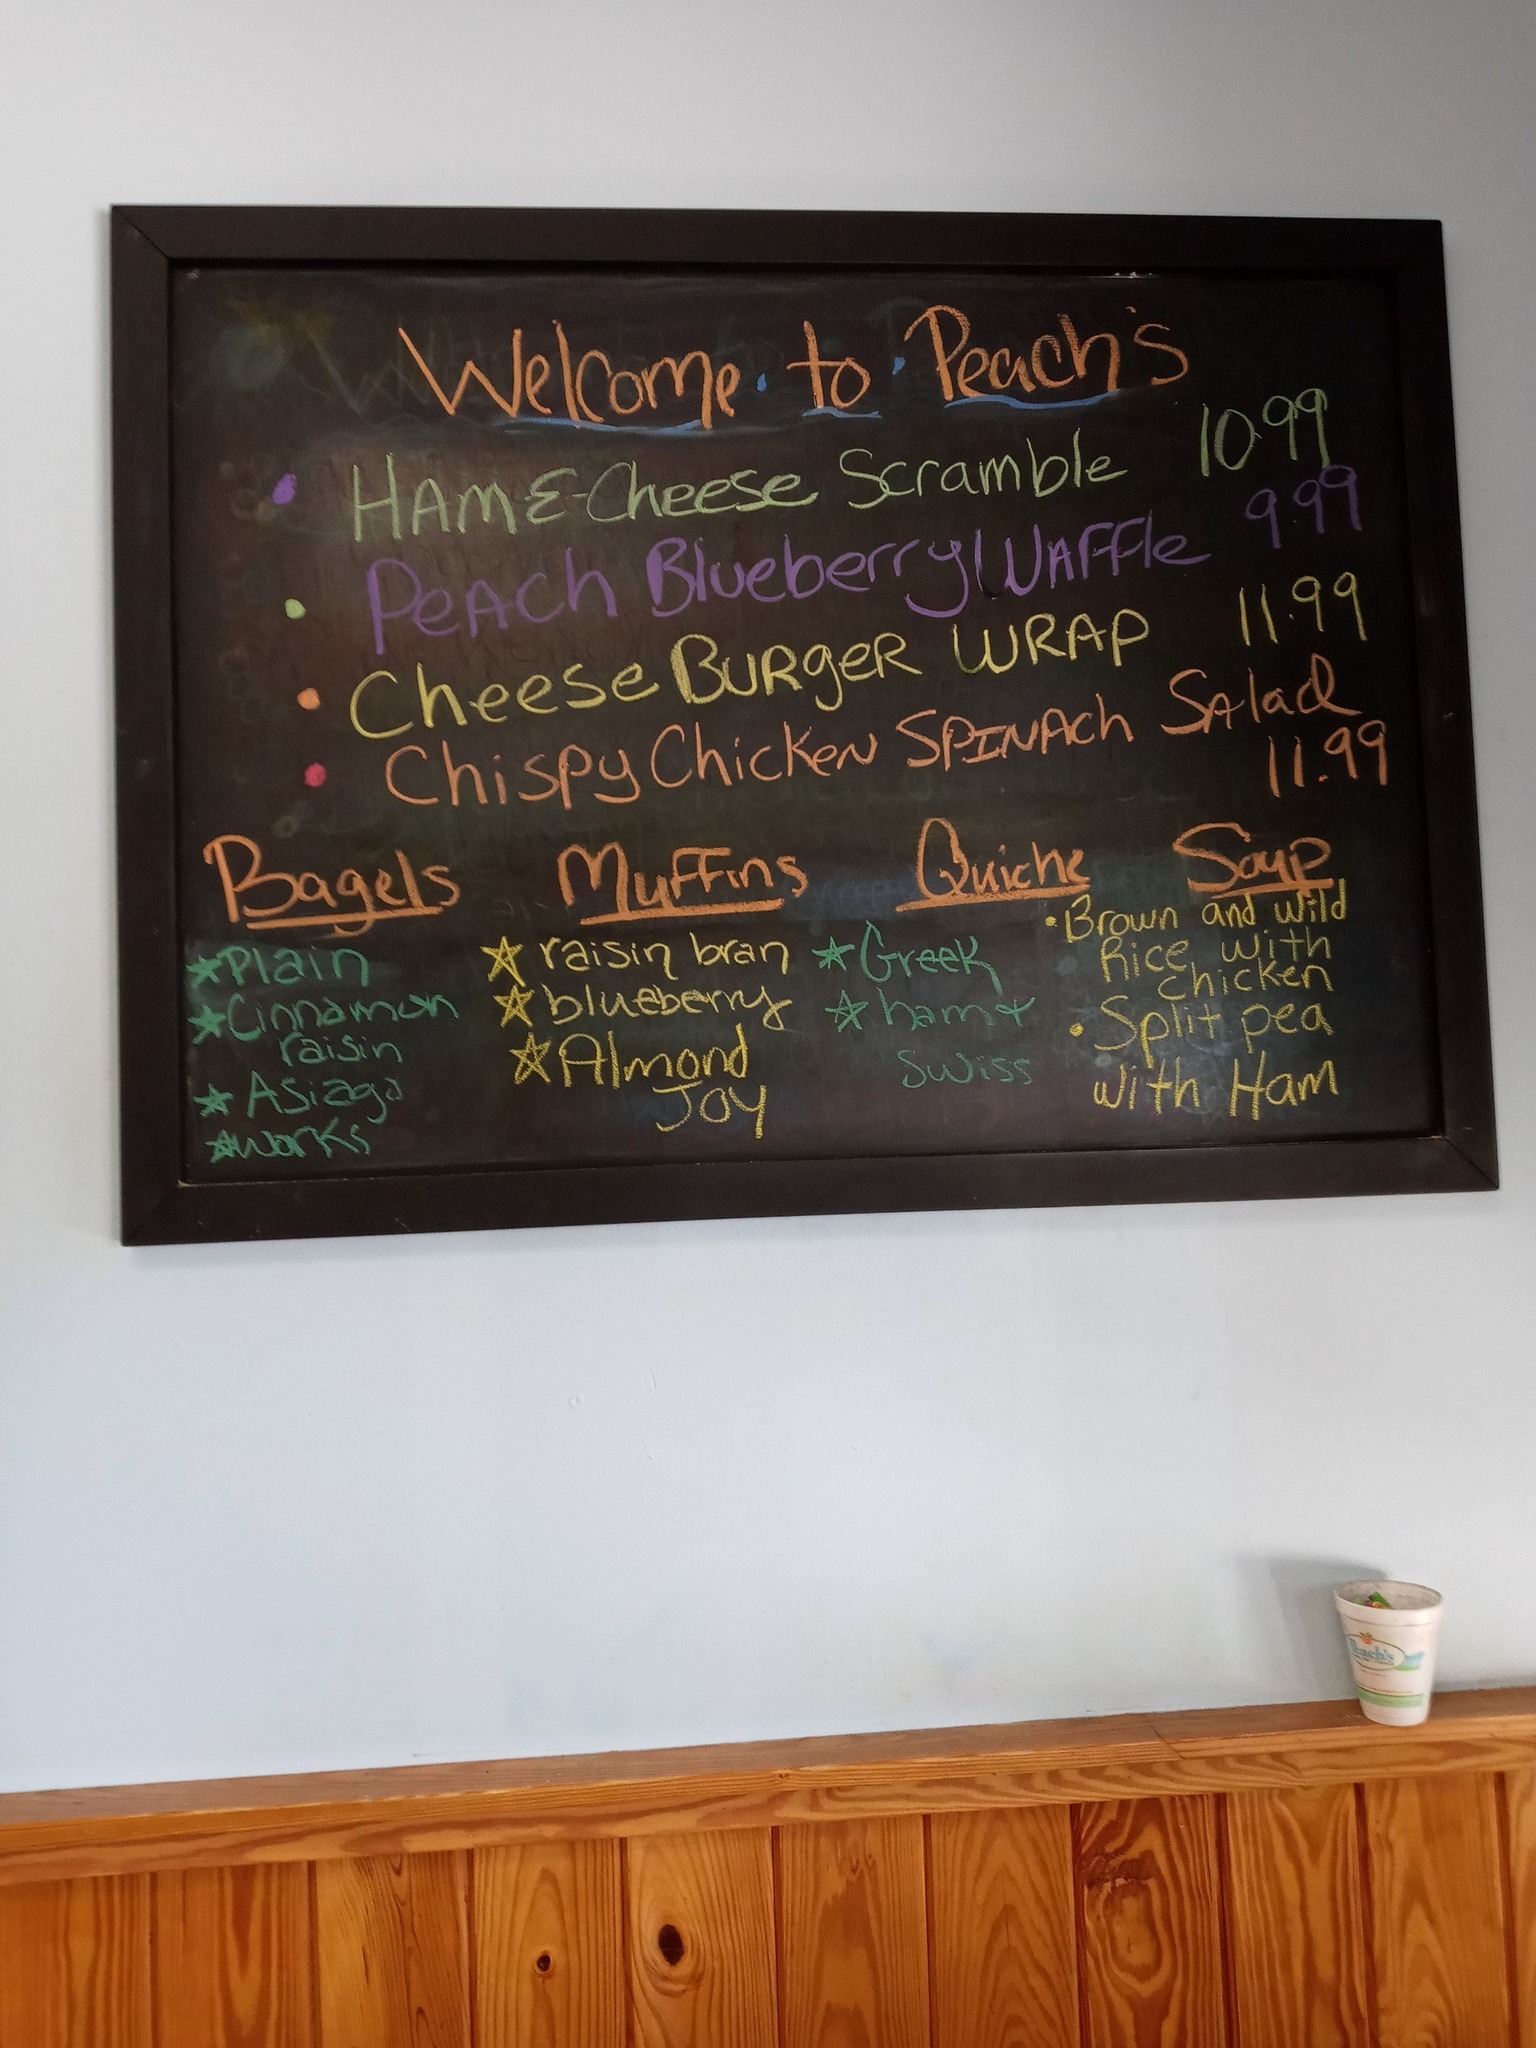 Welcome to Peach's
HAM & Cheese Scramble 10.99
PeACh Blueberry WAFFle 9.99
Cheese BURgER WRAP 11.99
Chispy ChickeN SPINACh SAlad
11.99
Bagels Muffins Quiche Soup
Plain
Cinnamon
raisin
Asiago
works
raisin bran
blueberry
Almond
Joy
Greek
ham +
swiss
Brown and wild
Rice with
chicken
Split pea
with Ham
Peach's